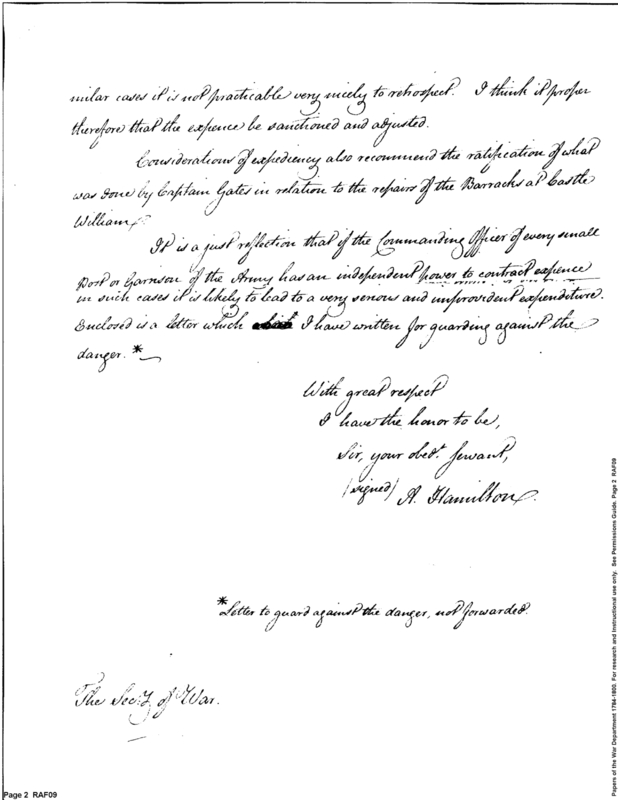 milar cases it is not practicable very nicely to retrospect. I think it proper
therefore that the expence be sanctioned and adjusted.
Considerations of expediency also recommend the ratification of what
was done by Captain Gates in relation to the repairs of the Barracks at Castle
William.
It is a just reflection that if the Commanding Officer of every small
Post or Garrison of the Army has an independent power to contract expence
in such cases it is likely to lead to a very serious and improvident expenditure.
Enclosed is a letter which I have written for guarding against the
danger. *
With great respect
I have the honor to be,
Sir, your obedt. servant,
(signed) A. Hamilton.
*Letter to guard against the danger, not forwarded.
The Secy. of War.
Page 2 RAF09
Papers of the War Department 1784-1800. For research and instructional use only. See Permissions Guide. Page 2 RAF09